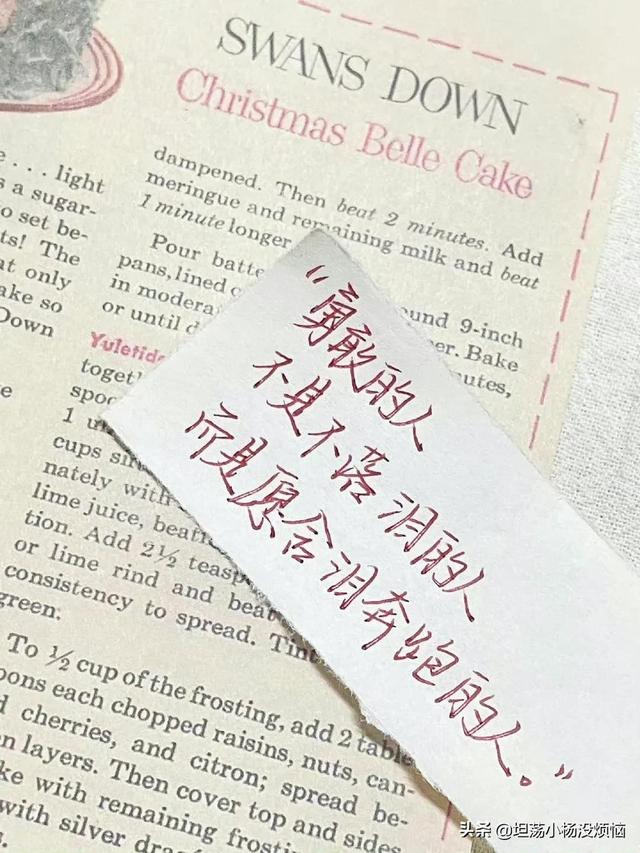 SWANS DOWN
Christmas Belle Cake
dampened. Then beat 2 minutes. Add
meringue and remaining milk and beat
1 minute longer.
Pour batte
pans, lined
in modera
or until d
ound 9-inch
er. Bake
utes,
... light
s a sugar-
o set be-
ts! The
at only
ake so
Down
Yuletide
toget
spoo
1 u
cups si
nately with
lime juice, beati
tion. Add 2½ teasp
or lime rind and beat
consistency to spread. Tint
green.
To ½ cup of the frosting, add 2 table
oons each chopped raisins, nuts, can-
d cherries, and citron; spread be-
n layers. Then cover top and sides
ke with remaining frosti
with silver drag
s.
“勇敢的人
不是不落泪的人
而是愿含泪奔跑的人。”
头条 @坦荡小杨没烦恼